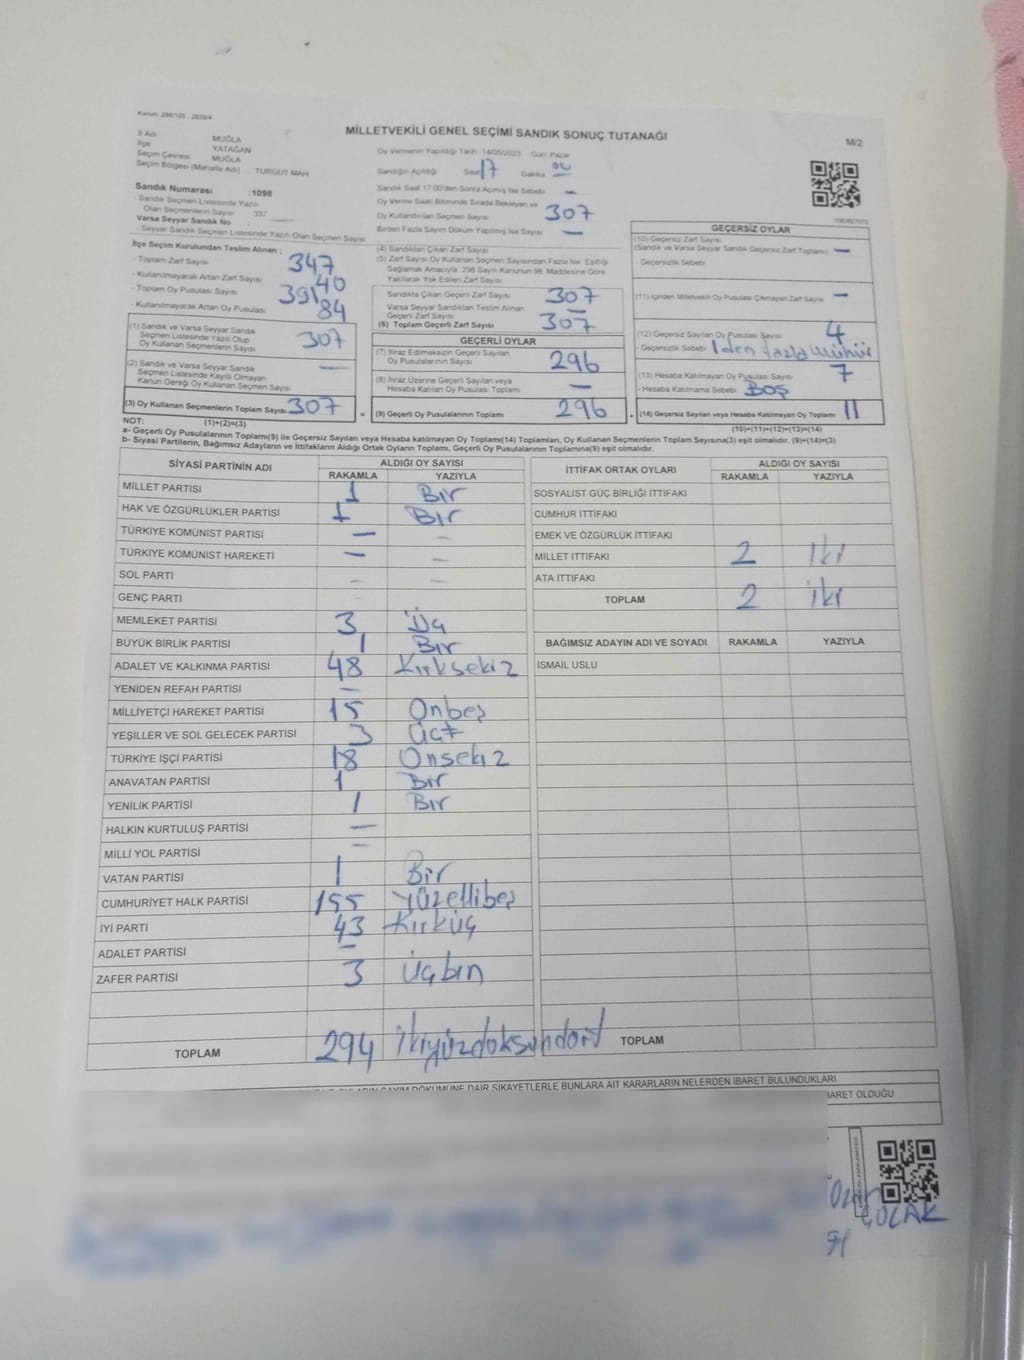 Kanun: 298/105 , 2839/4
MİLLETVEKİLİ GENEL SEÇİMİ SANDIK SONUÇ TUTANAĞI
M/2
İl Adı MUĞLA
İlçe YATAĞAN
Seçim Çevresi MUĞLA
Seçim Bölgesi (Mahalle Adı) : TURGUT MAH
Oy Vermenin Yapıldığı Tarih :14/05/2023 Gün: Pazar
Sandığın Açıldığı Saat 17 Dakika
Sandık Saat 17:00'den Sonra Açılmış İse Sebebi: —
Sandık Numarası :1098
- Sandık Seçmen Listesinde Yazılı
Olan Seçmenlerin Sayısı : 337
Varsa Seyyar Sandık No : —
- Seyyar Sandık Seçmen Listesinde Yazılı Olan Seçmen Sayısı
Oy Verme Saati Bitiminde Sırada Bekleyen ve
Oy Kullandırılan Seçmen Sayısı 307
Birden Fazla Sayım Döküm Yapılmış İse Sayısı —
İlçe Seçim Kurulundan Teslim Alınan :
- Toplam Zarf Sayısı 347
- Kullanılmayarak Artan Zarf Sayısı 40
- Toplam Oy Pusulası 391
- Kullanılmayarak Artan Oy Pusulası 84
(1) Sandık ve Varsa Seyyar Sandık
Seçmen Listesinde Yazılı Olup
Oy Kullanan Seçmenlerin Sayısı 307
(2) Sandık ve Varsa Seyyar Sandık
Seçmen Listesinde Kayıtlı Olmayan
Kanun Gereği Oy Kullanan Seçmen Sayısı —
(3) Oy Kullanan Seçmenlerin Toplam Sayısı 307
(4) Sandıktan Çıkan Zarf Sayısı
(5) Zarf Sayısı Oy Kullanan Seçmen Sayısından Fazla İse, Eşitliği
Sağlamak Amacıyla, 298 Sayılı Kanunun 98. Maddesine Göre
Yakılarak Yok Edilen Zarf Sayısı
Sandıkta Çıkan Geçerli Zarf Sayısı 307
Varsa Seyyar Sandıktan Teslim Alınan
Geçerli Zarf Sayısı —
(6) Toplam Geçerli Zarf Sayısı 307
GEÇERLİ OYLAR
(7) İtiraz Edilmeksizin Geçerli Sayılan
Oy Pusulalarının Sayısı 296
(8) İtiraz Üzerine Geçerli Sayılan veya
Hesaba Katılan Oy Pusulası Toplamı —
= (9) Geçerli Oy Pusulalarının Toplamı 296
GEÇERSİZ OYLAR
(10) Geçersiz Zarf Sayısı
(Sandık ve Varsa Seyyar Sandık Geçersiz Zarf Toplamı) —
- Geçersizlik Sebebi:
(11) İçinden Milletvekili Oy Pusulası Çıkmayan Zarf Sayısı —
(12) Geçersiz Sayılan Oy Pusulası Sayısı 4
- Geçersizlik Sebebi: 1 den fazla mühür
(13) Hesaba Katılmayan Oy Pusulası Sayısı 7
- Hesaba Katılmama Sebebi: BOŞ
+ (14) Geçersiz Sayılan veya Hesaba Katılmayan Oy Toplamı 11
NOT: (1)+(2)=(3)
(10)+(11)+(12)+(13)=(14)
a- Geçerli Oy Pusulalarının Toplamı(9) ile Geçersiz Sayılan veya Hesaba katılmayan Oy Toplamı(14) Toplamları, Oy Kullanan Seçmenlerin Toplam Sayısına(3) eşit olmalıdır. (9)+(14)=(3)
b- Siyasi Partilerin, Bağımsız Adayların ve İttifakların Aldığı Ortak Oyların Toplamı, Geçerli Oy Pusulalarının Toplamına(9) eşit olmalıdır.
SİYASİ PARTİNİN ADI ALDIĞI OY SAYISI
RAKAMLA YAZIYLA
MİLLET PARTİSİ 1 Bir
HAK VE ÖZGÜRLÜKLER PARTİSİ 1 Bir
TÜRKİYE KOMÜNİST PARTİSİ — —
TÜRKİYE KOMÜNİST HAREKETİ — —
SOL PARTİ — —
GENÇ PARTİ
MEMLEKET PARTİSİ 3 Üç
BÜYÜK BİRLİK PARTİSİ 1 Bir
ADALET VE KALKINMA PARTİSİ 48 Kırksekiz
YENİDEN REFAH PARTİSİ —
MİLLİYETÇİ HAREKET PARTİSİ 15 Onbeş
YEŞİLLER VE SOL GELECEK PARTİSİ 3
TÜRKİYE İŞÇİ PARTİSİ 18 Onsekiz
ANAVATAN PARTİSİ 1 Bir
YENİLİK PARTİSİ 1 Bir
HALKIN KURTULUŞ PARTİSİ —
MİLLİ YOL PARTİSİ —
VATAN PARTİSİ 1 Bir
CUMHURİYET HALK PARTİSİ 155 Yüzellibeş
İYİ PARTİ 43 Kırküç
ADALET PARTİSİ —
ZAFER PARTİSİ 3 Üçbın
TOPLAM 294 ikiyüzdoksandört
İTTİFAK ORTAK OYLARI ALDIĞI OY SAYISI
RAKAMLA YAZIYLA
SOSYALİST GÜÇ BİRLİĞİ İTTİFAKI
CUMHUR İTTİFAKI
EMEK VE ÖZGÜRLÜK İTTİFAKI
MİLLET İTTİFAKI 2 iki
ATA İTTİFAKI
TOPLAM 2 iki
BAĞIMSIZ ADAYIN ADI VE SOYADI RAKAMLA YAZIYLA
İSMAİL USLU
TOPLAM
SAYIM DÖKÜMÜNE DAİR ŞİKAYETLERLE BUNLARA AİT KARARLARIN NELERDEN İBARET BULUNDUKLARI
İBARET OLDUĞU
ÇOLAK